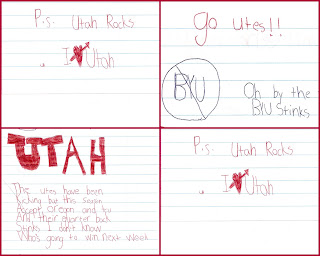 P.S. Utah Rocks
I Utah
go utes!!
BYU
Oh by the
BYU Stinks
UTAH
The utes have been
kicking but this seson
except oregon and tcu
and their quarter back
stinks I don't know
Who's going to win next week
P.S. Utah Rocks
I Utah